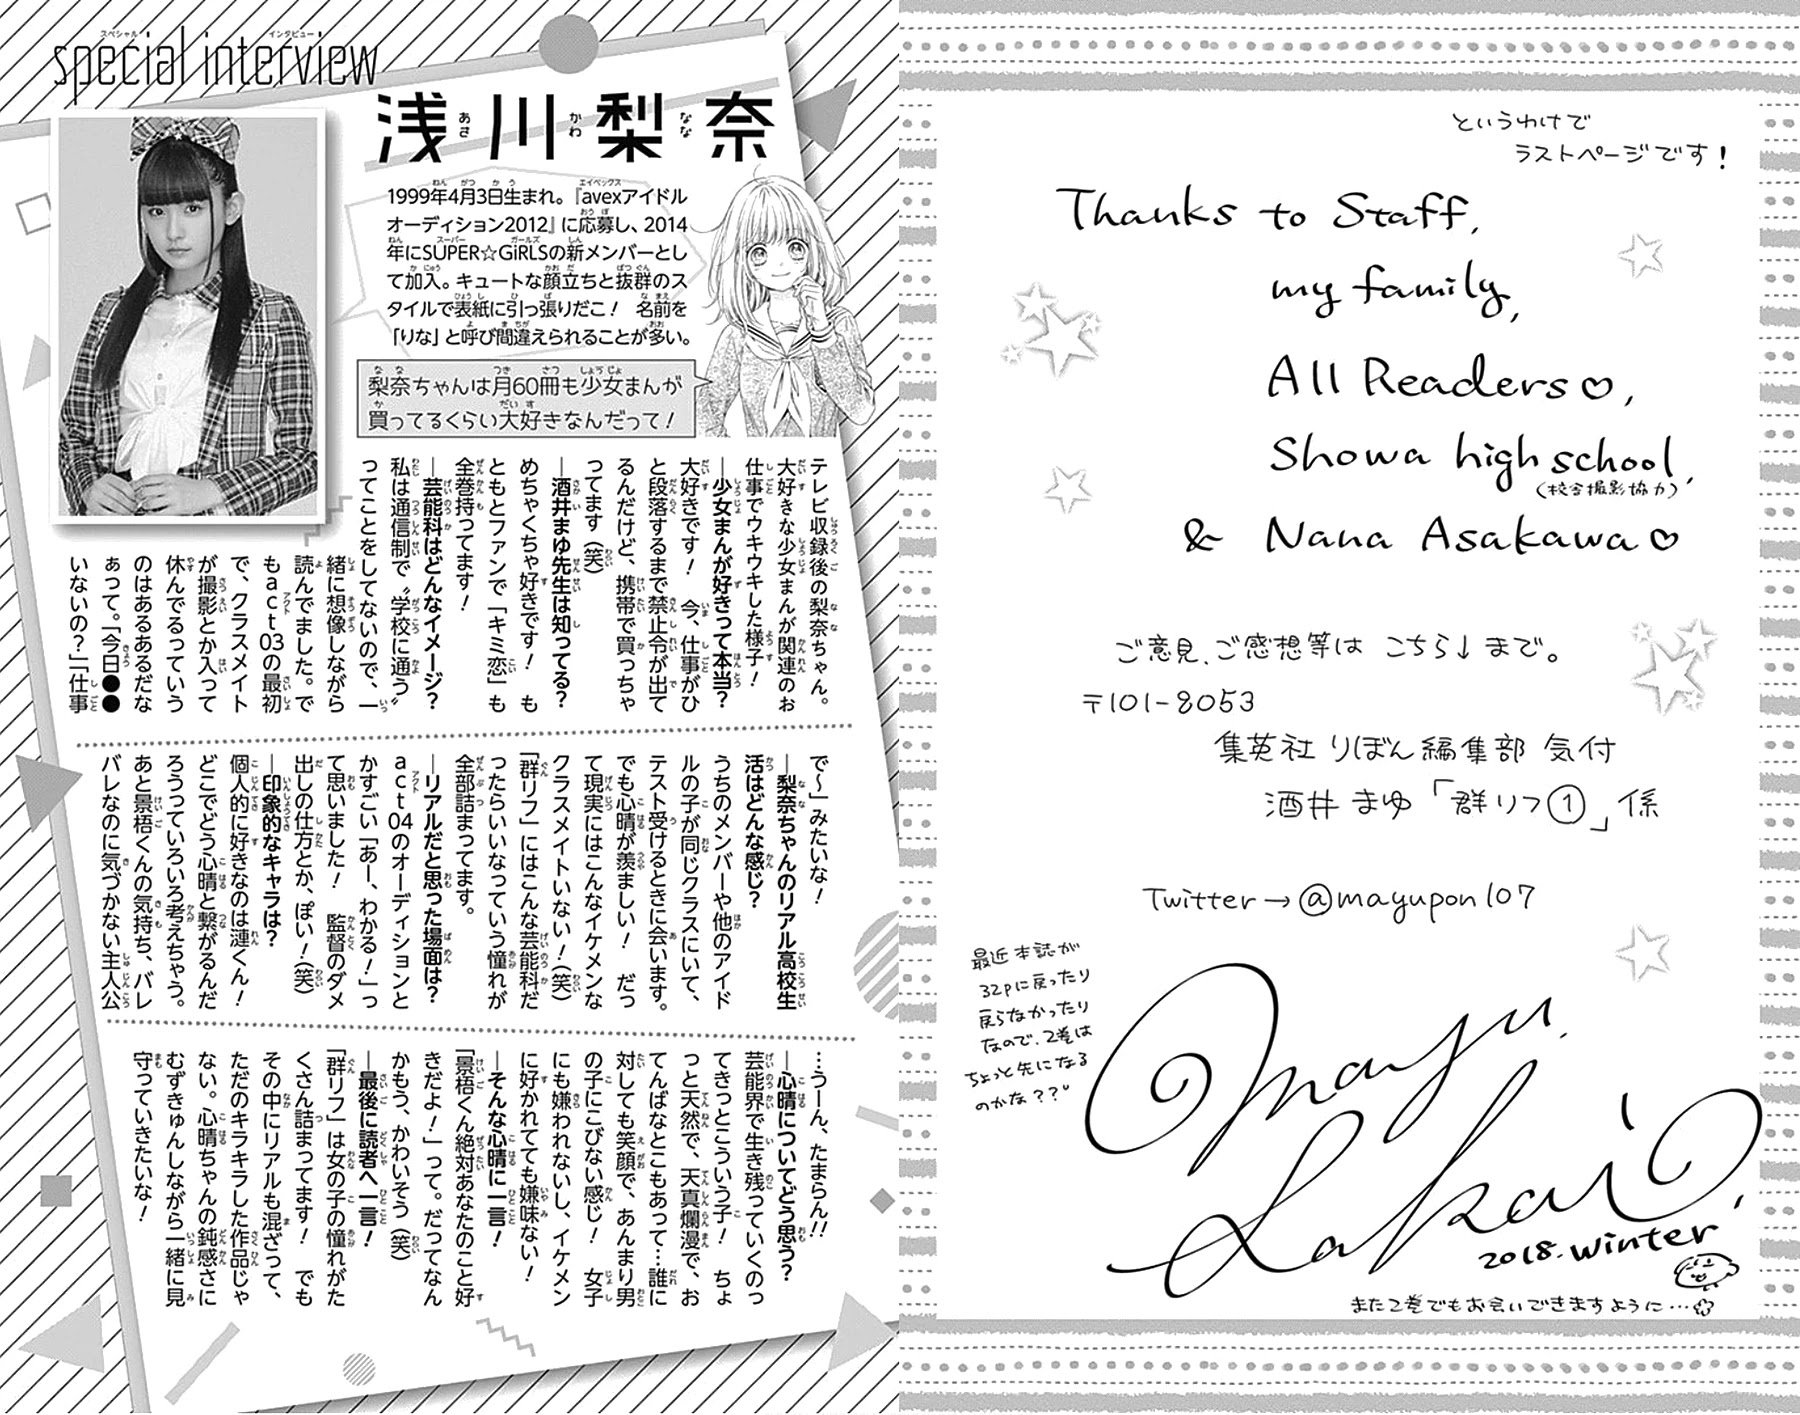 special interview
浅川梨奈
1999年4月3日生まれ。『avexアイドル
オーディション2012』に応募し、2014
年にSUPER☆GiRLSの新メンバーとし
て加入。キュートな顔立ちと抜群のス
タイルで表紙に引っ張りだこ！ 名前を
「りな」と呼び間違えられることが多い。
梨奈ちゃんは月60冊も少女まんが
買ってるくらい大好きなんだって！
テレビ収録後の梨奈ちゃん。
大好きな少女まんが関連のお
仕事でウキウキした様子！
―少女まんが好きって本当？
大好きです！ 今、仕事がひ
と段落するまで禁止令が出て
るんだけど、携帯で買っちゃ
ってます（笑）
―酒井まゆ先生は知ってる？
めちゃくちゃ好きです！ も
ともとファンで「キミ恋」も
全巻持ってます！
―芸能科はどんなイメージ？
私は通信制で〝学校に通う〟
ってことをしてないので、一
緒に想像しながら
読んでました。で
もact03の最初
で、クラスメイト
が撮影とか入って
休んでるっていう
のはあるあるだな
あって。「今日●●
いないの？」「仕事
で〜」みたいな！
―梨奈ちゃんのリアル高校生
活はどんな感じ？
うちのメンバーや他のアイド
ルの子が同じクラスにいて、
テスト受けるときに会います。
でも心晴が羨ましい！ だっ
て現実にはこんなイケメンな
クラスメイトいない！（笑）
「群リフ」にはこんな芸能科だ
ったらいいなっていう憧れが
全部詰まってます。
―リアルだと思った場面は？
act04のオーディションと
かすごい「あー、わかる！」っ
て思いました！ 監督のダメ
出しの仕方とか、ぽい！（笑）
―印象的なキャラは？
個人的に好きなのは漣くん！
どこでどう心晴と繋がるんだ
ろうっていろいろ考えちゃう。
あと景梧くんの気持ち、バレ
バレなのに気づかない主人公
…うーん、たまらん!!
―心晴についてどう思う？
芸能界で生き残っていくのっ
てきっとこういう子！ ちょ
っと天然で、天真爛漫で、お
てんばなとこもあって…誰に
対しても笑顔で、あんまり男
の子にこびない感じ！ 女子
にも嫌われないし、イケメン
に好かれてても嫌味ない！
―そんな心晴に一言！
「景梧くん絶対あなたのこと好
きだよ！」って。だってなん
かもう、かわいそう（笑）
―最後に読者へ一言！
「群リフ」は女の子の憧れがた
くさん詰まってます！ でも
その中にリアルも混ざって、
ただのキラキラした作品じゃ
ない。心晴ちゃんの鈍感さに
むずきゅんしながら一緒に見
守っていきたいな！
というわけで
ラストページです！
Thanks to Staff,
my family,
All Readers♡,
Showa high school,
(校舎撮影協力)
& Nana Asakawa♡
ご意見、ご感想等は こちら↓まで。
〒101-8053
集英社 りぼん編集部 気付
酒井 まゆ「群リフ①」係
Twitter→@mayupon107
最近本誌が
32pに戻ったり
戻らなかったり
なので、2巻は
ちょっと先になる
のかな??
Mayu.
Sakai
2018.winter
また2巻でもお会いできますように…